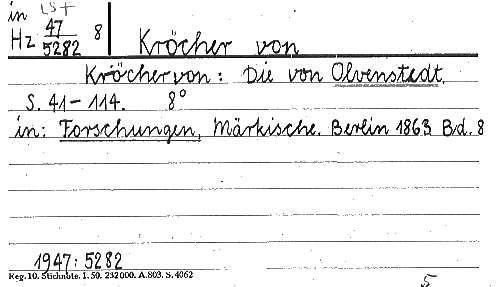 in LSt
Hz 47/5282 8
Kröcher von
Kröcher von: Die von Olvenstedt.
S. 41-114. 8°
in: Forschungen, Märkische. Berlin 1863 Bd. 8
1947: 5282
Reg. 10. Stichnbte. I. 50. 232000. A.803. S. 4062
5